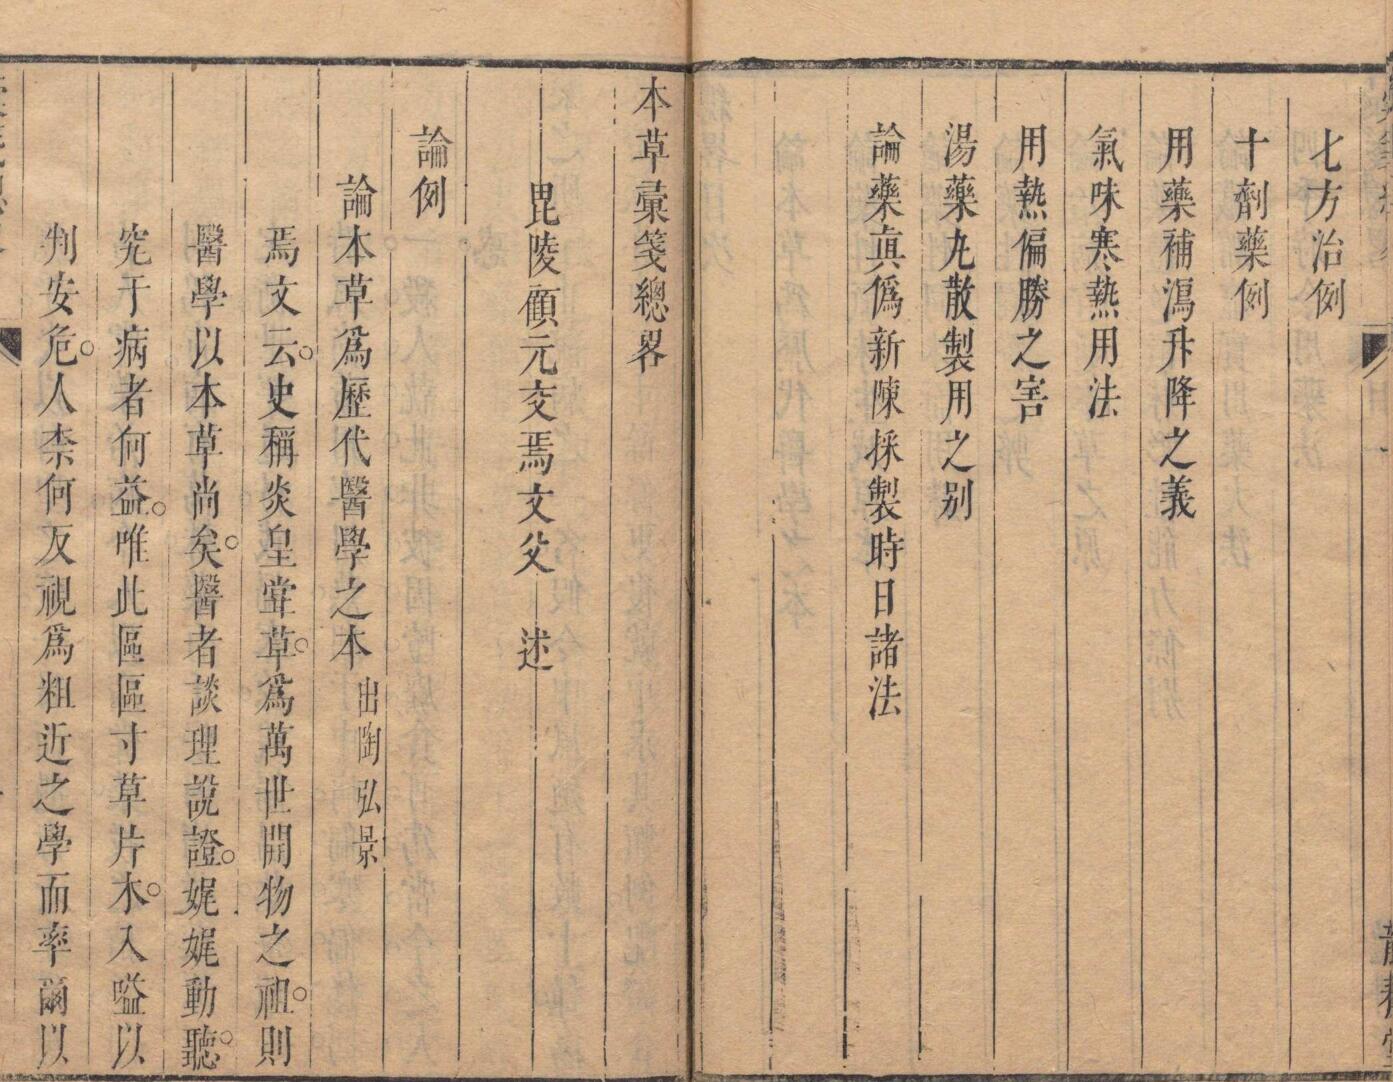 七方治例
十劑藥例
用藥補瀉升降之義
氣味寒熱用法
用熱偏勝之害
湯藥丸散製用之别
論藥眞僞新陳採製時日諸法
本草彚笺總畧
毘陵顧元交焉文父 述
論例
論本草爲歷代醫學之本 出陶弘景
焉文云史稱炎皇甞草爲萬世開物之祖則
醫學以本草尚矣醫者談理說證娓娓動聽
究于病者何益唯此區區寸草片木入嗌以
判安危人柰何反視爲粗近之學而率爾以